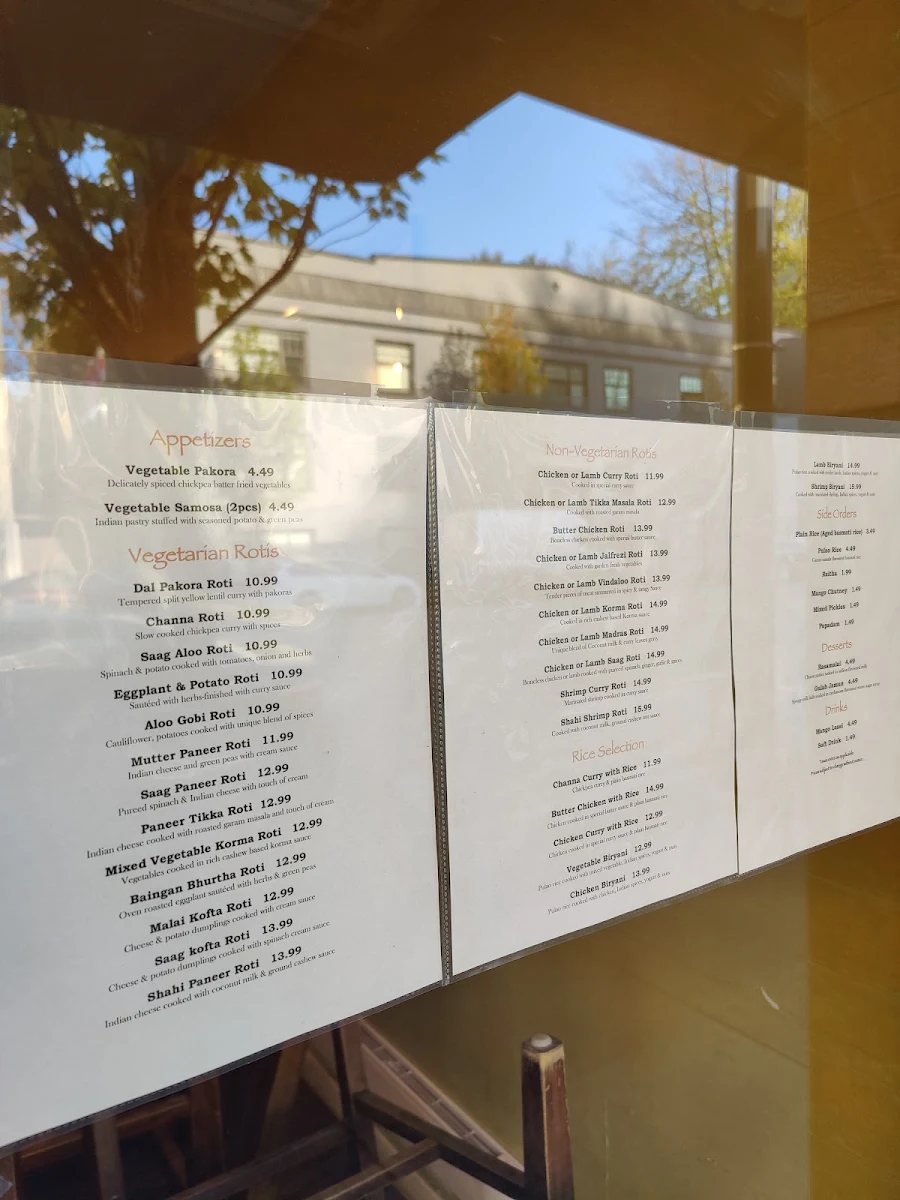 Appetizers
Vegetable Pakora 4.49
Delicately spiced chickpea batter fried vegetables
Vegetable Samosa (2pcs) 4.49
Indian pastry stuffed with seasoned potato & green peas
Vegetarian Rotis
Dal Pakora Roti 10.99
Tempered split yellow lentil curry with pakoras
Channa Roti 10.99
Slow cooked chickpea curry with spices
Saag Aloo Roti 10.99
Spinach & potato cooked with tomatoes, onion and herbs
Eggplant & Potato Roti 10.99
Sautéed with herbs-finished with curry sauce
Aloo Gobi Roti 10.99
Cauliflower, potatoes cooked with unique blend of spices
Mutter Paneer Roti 11.99
Indian cheese and green peas with cream sauce
Saag Paneer Roti 12.99
Pureed spinach & Indian cheese with touch of cream
Paneer Tikka Roti 12.99
Indian cheese cooked with roasted garam masala and touch of cream
Mixed Vegetable Korma Roti 12.99
Vegetables cooked in rich cashew based korma sauce
Baingan Bhurtha Roti 12.99
Oven roasted eggplant sautéed with herbs & green peas
Malai Kofta Roti 12.99
Cheese & potato dumplings cooked with cream sauce
Saag kofta Roti 13.99
Cheese & potato dumplings cooked with spinach cream sauce
Shahi Paneer Roti 13.99
Indian cheese cooked with coconut milk & ground cashew sauce
Non-Vegetarian Rotis
Chicken or Lamb Curry Roti 11.99
Cooked in special curry sauce
Chicken or Lamb Tikka Masala Roti 12.99
Cooked with roasted garam masala
Butter Chicken Roti 13.99
Boneless chicken cooked with special butter sauce
Chicken or Lamb Jalfrezi Roti 13.99
Cooked with garden fresh vegetables
Chicken or Lamb Vindaloo Roti 13.99
Tender pieces of meat simmered in spicy & tangy Sauce
Chicken or Lamb Korma Roti 14.99
Cooked in rich cashew based Korma sauce
Chicken or Lamb Madras Roti 14.99
Unique blend of Coconut milk & curry leaves gravy
Chicken or Lamb Saag Roti 14.99
Boneless chicken or lamb cooked with pureed spinach, ginger, garlic & spices
Shrimp Curry Roti 14.99
Marinated shrimp cooked in curry sauce
Shahi Shrimp Roti 15.99
Cooked with coconut milk, ground cashew nut sauce
Rice Selection
Channa Curry with Rice 11.99
Chickpea curry & plain basmati rice
Butter Chicken with Rice 14.99
Chicken cooked in special butter sauce & plain basmati rice
Chicken Curry with Rice 12.99
Chicken cooked in special curry sauce & plain basmati rice
Vegetable Biryani 12.99
Pulao rice cooked with mixed vegetable, Indian spices, yogurt & nuts
Chicken Biryani 13.99
Pulao rice cooked with chicken, Indian spices, yogurt & nuts
Lamb Biryani 14.99
Pulao rice cooked with tender lamb, Indian spices, yogurt & nuts
Shrimp Biryani 15.99
Side Orders
Plain Rice (Aged basmati rice)
Pulao Rice 4.49
Raitha 1.99
Mango Chutney 1.49
Mixed Pickles 1.49
Papadam 1.49
Desserts
Rasamalai 4.49
Gulab Jamun 4.49
Drinks
Mango Lassi 4.49
Soft Drink 1.49